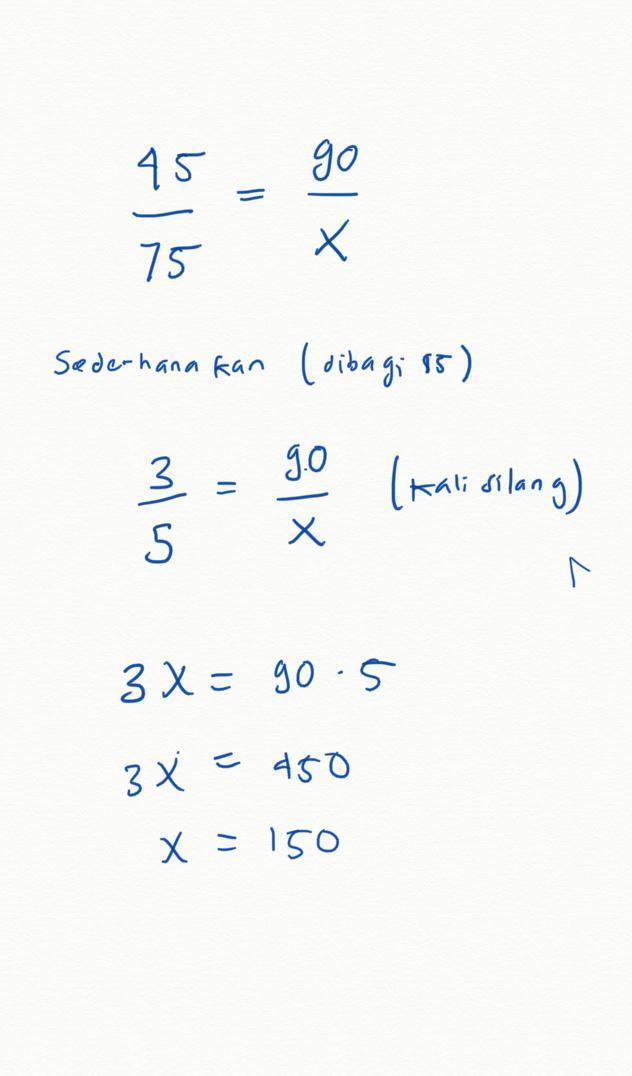 45/75 = 90/x
Sederhanakan (dibagi 15)
3/5 = 90/x (kali silang)
3x = 90 · 5
3x = 450
x = 150